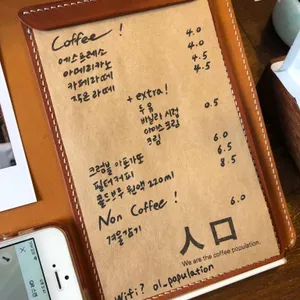 Coffee !
에스프레소 4.0
아메리카노 4.0
카페라떼 4.5
작은라떼 4.5
+ extra!
두유
바닐라 시럽 0.5
아이스크림
크림
크럼블 아포가토 6.0
필터커피 6.5
콜드브루 원액 220ml 8.5
Non Coffee !
겨울감기 6.0
人口
We are the coffee population.
Wifi? ol-population